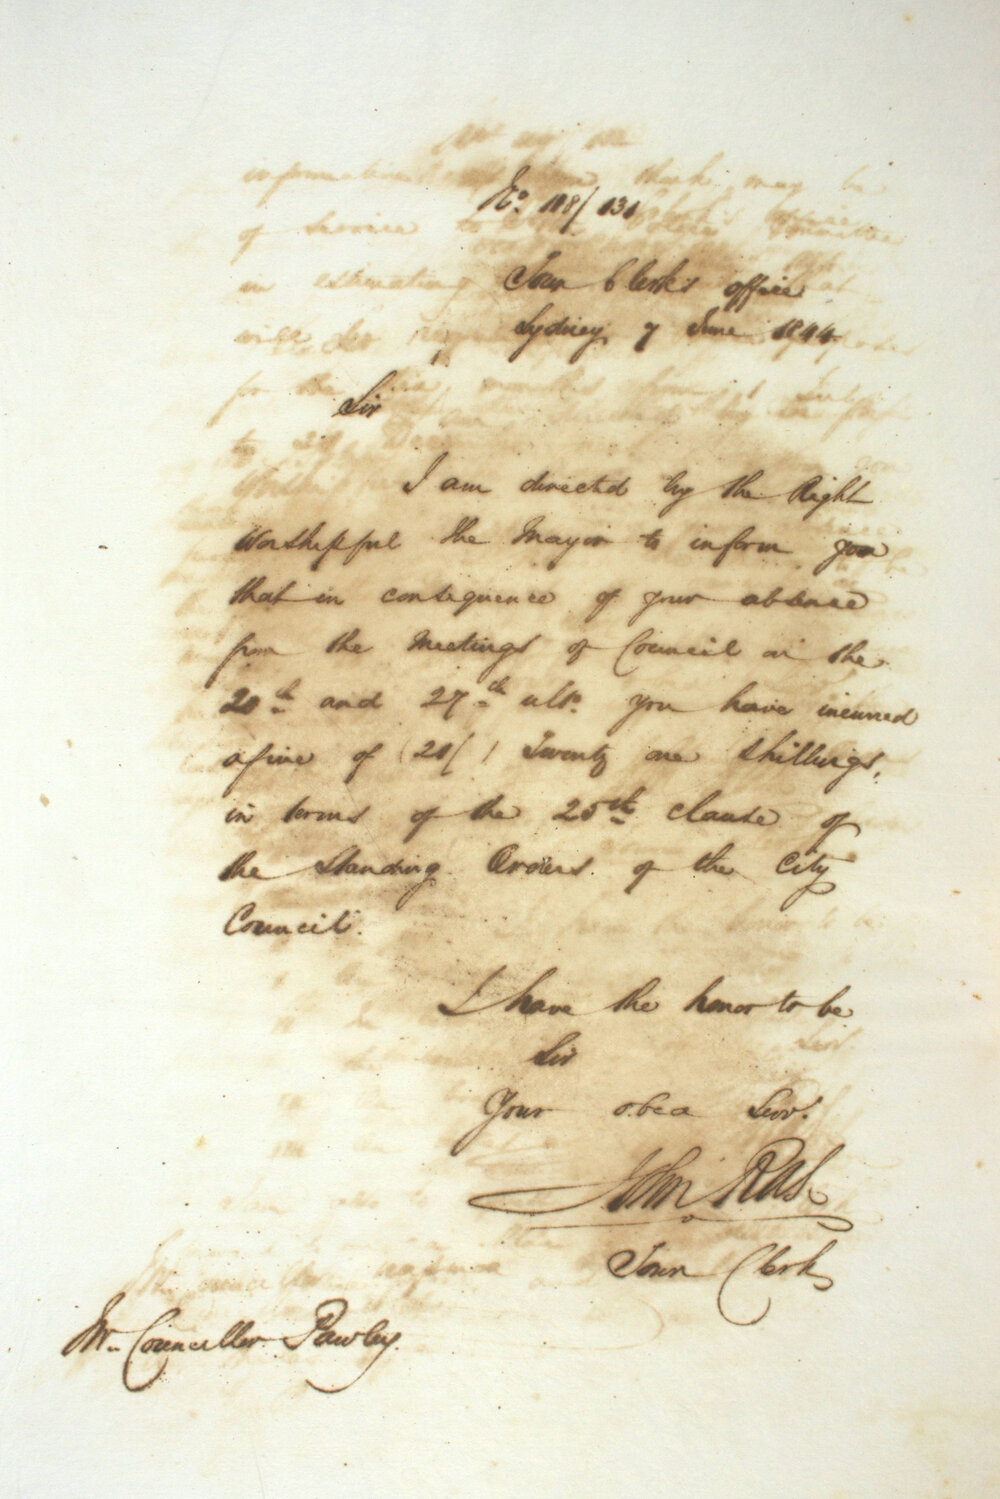 No. 118/131
Town Clerk's office
Sydney 7 June 1844
Sir
I am directed by the Right
Worshipful the Mayor to inform you
that in consequence of your absence
from the Meetings of Council on the
20th and 27th ulto. you have incurred
a fine of (21/) Twenty one Shillings,
in terms of the 25th clause of
the Standing Orders of the City
Council.
I have the honor to be
Sir
Your obed Servt.
John Rae
Town Clerk
Mr. Councillor Pawley.